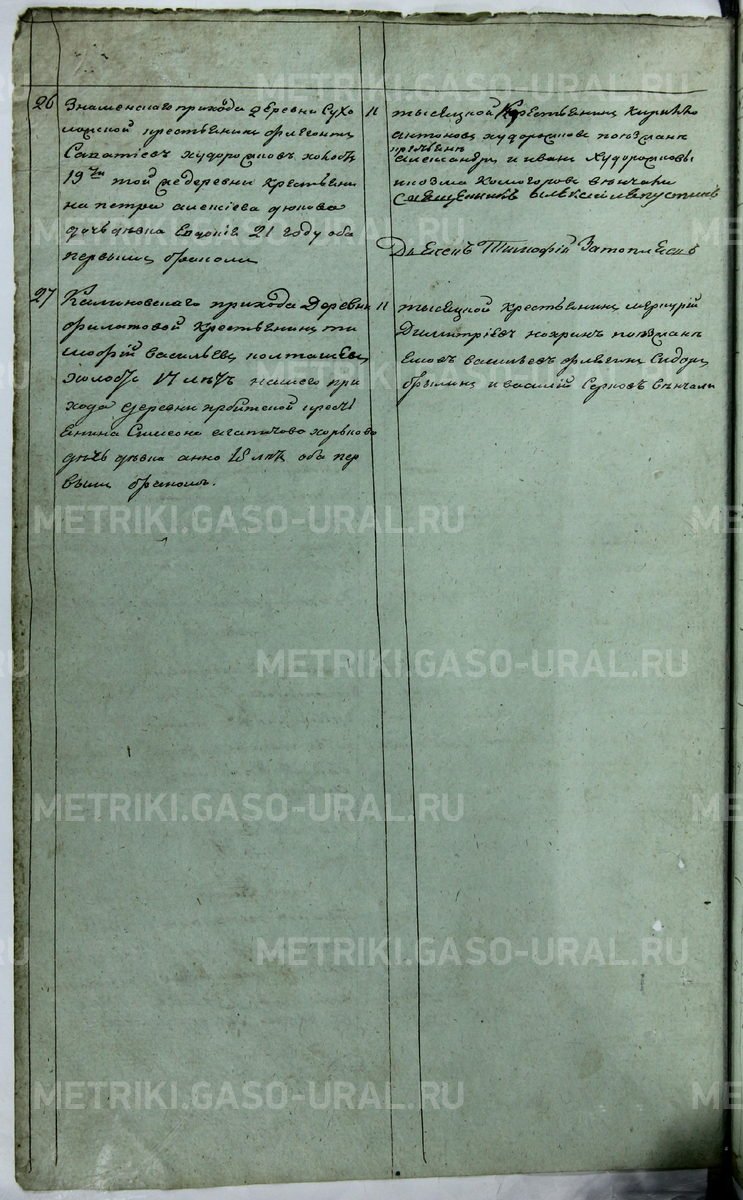 26 Знаменскаго прихода деревни Сухо
ложской крестьянинъ флегонтъ
Саватіевъ худорожковъ холостъ
19ти той же деревни крестьяни
на петра алексіева дюкова
дочь дѣвка Евдокія 21 году оба
первымъ бракомъ
11 тысяцкой крестьянинъ Кирилло
антоновъ худорожковъ поезжанѣ
крестьянѣ
александръ и иванъ Худорожковы
козма Комогоровъ вѣнчали
Священникъ Алексій Августинъ
Дьяконъ Тимофій Затопляевъ
27 Калиновскаго прихода Деревни
филатовой Крестьянинъ ти
мофій васильевъ полташевъ
холостъ 17 лѣтъ нашего при
хода деревни ирбитской крестья
янина Симеона агапитова хорькова
дочь дѣвка анна 18 лѣтъ оба пер
вымъ бракомъ.
11 тысяцкой крестьянинъ меркурій
Димитріевъ кокринъ поезжанѣ
васильевъ Сидоръ
брылинъ и василій Серковъ вѣнчали
METRIKI.GASO-URAL.RU